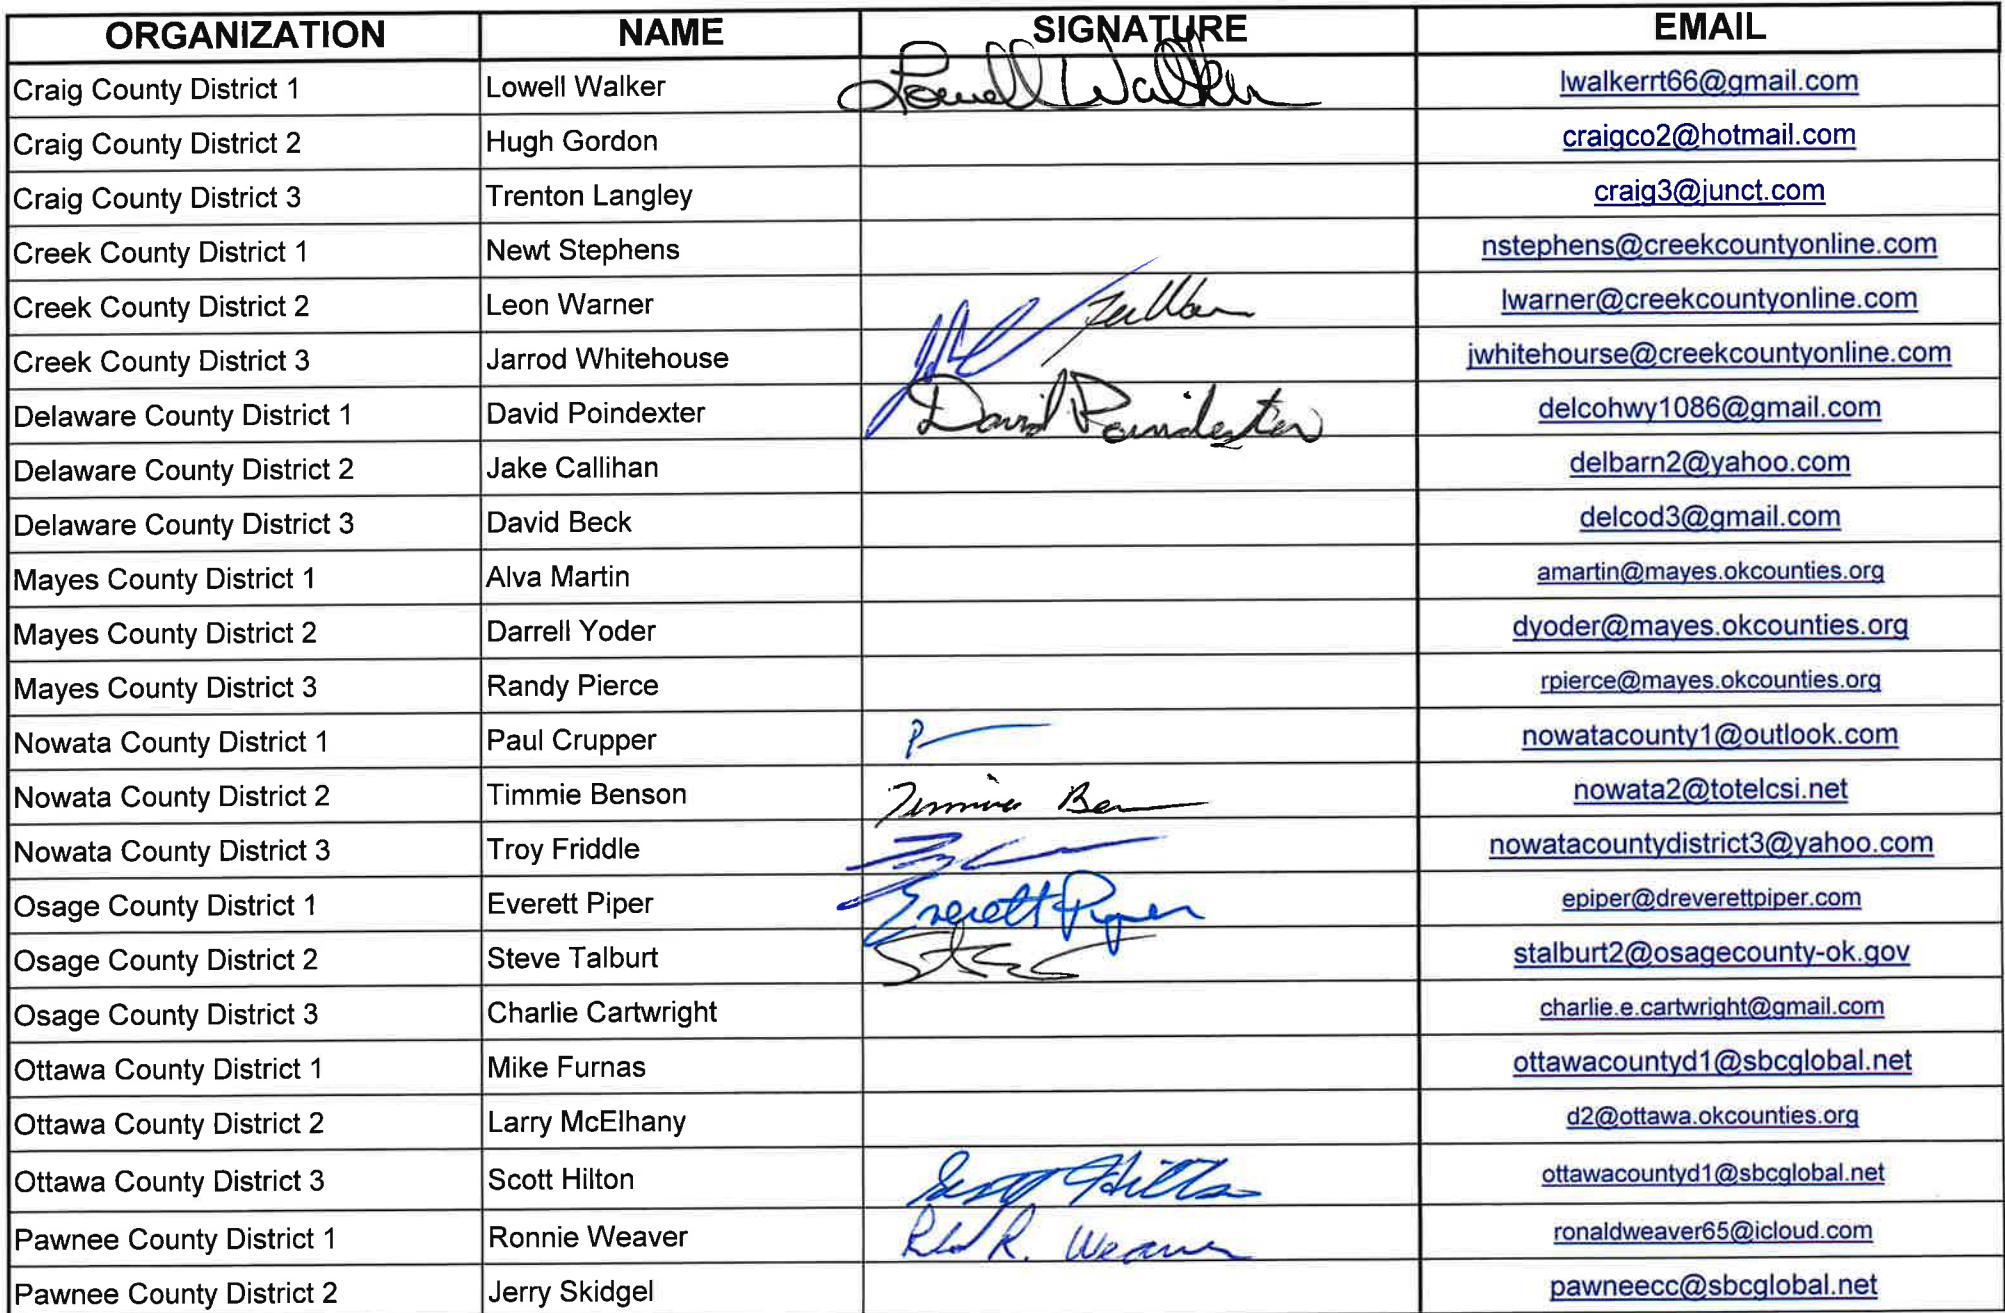 ORGANIZATION NAME SIGNATURE EMAIL
Craig County District 1 Lowell Walker Lowell Walker lwalkerrt66@gmail.com
Craig County District 2 Hugh Gordon craigco2@hotmail.com
Craig County District 3 Trenton Langley craig3@junct.com
Creek County District 1 Newt Stephens nstephens@creekcountyonline.com
Creek County District 2 Leon Warner lwarner@creekcountyonline.com
Creek County District 3 Jarrod Whitehouse jwhitehourse@creekcountyonline.com
Delaware County District 1 David Poindexter David Poindexter delcohwy1086@gmail.com
Delaware County District 2 Jake Callihan delbarn2@yahoo.com
Delaware County District 3 David Beck delcod3@gmail.com
Mayes County District 1 Alva Martin amartin@mayes.okcounties.org
Mayes County District 2 Darrell Yoder dyoder@mayes.okcounties.org
Mayes County District 3 Randy Pierce rpierce@mayes.okcounties.org
Nowata County District 1 Paul Crupper nowatacounty1@outlook.com
Nowata County District 2 Timmie Benson Timmie nowata2@totelcsi.net
Nowata County District 3 Troy Friddle nowatacountydistrict3@yahoo.com
Osage County District 1 Everett Piper Everett Piper epiper@dreverettpiper.com
Osage County District 2 Steve Talburt stalburt2@osagecounty-ok.gov
Osage County District 3 Charlie Cartwright charlie.e.cartwright@gmail.com
Ottawa County District 1 Mike Furnas ottawacountyd1@sbcglobal.net
Ottawa County District 2 Larry McElhany d2@ottawa.okcounties.org
Ottawa County District 3 Scott Hilton Scott Hilton ottawacountyd1@sbcglobal.net
Pawnee County District 1 Ronnie Weaver R. Weaver ronaldweaver65@icloud.com
Pawnee County District 2 Jerry Skidgel pawneecc@sbcglobal.net